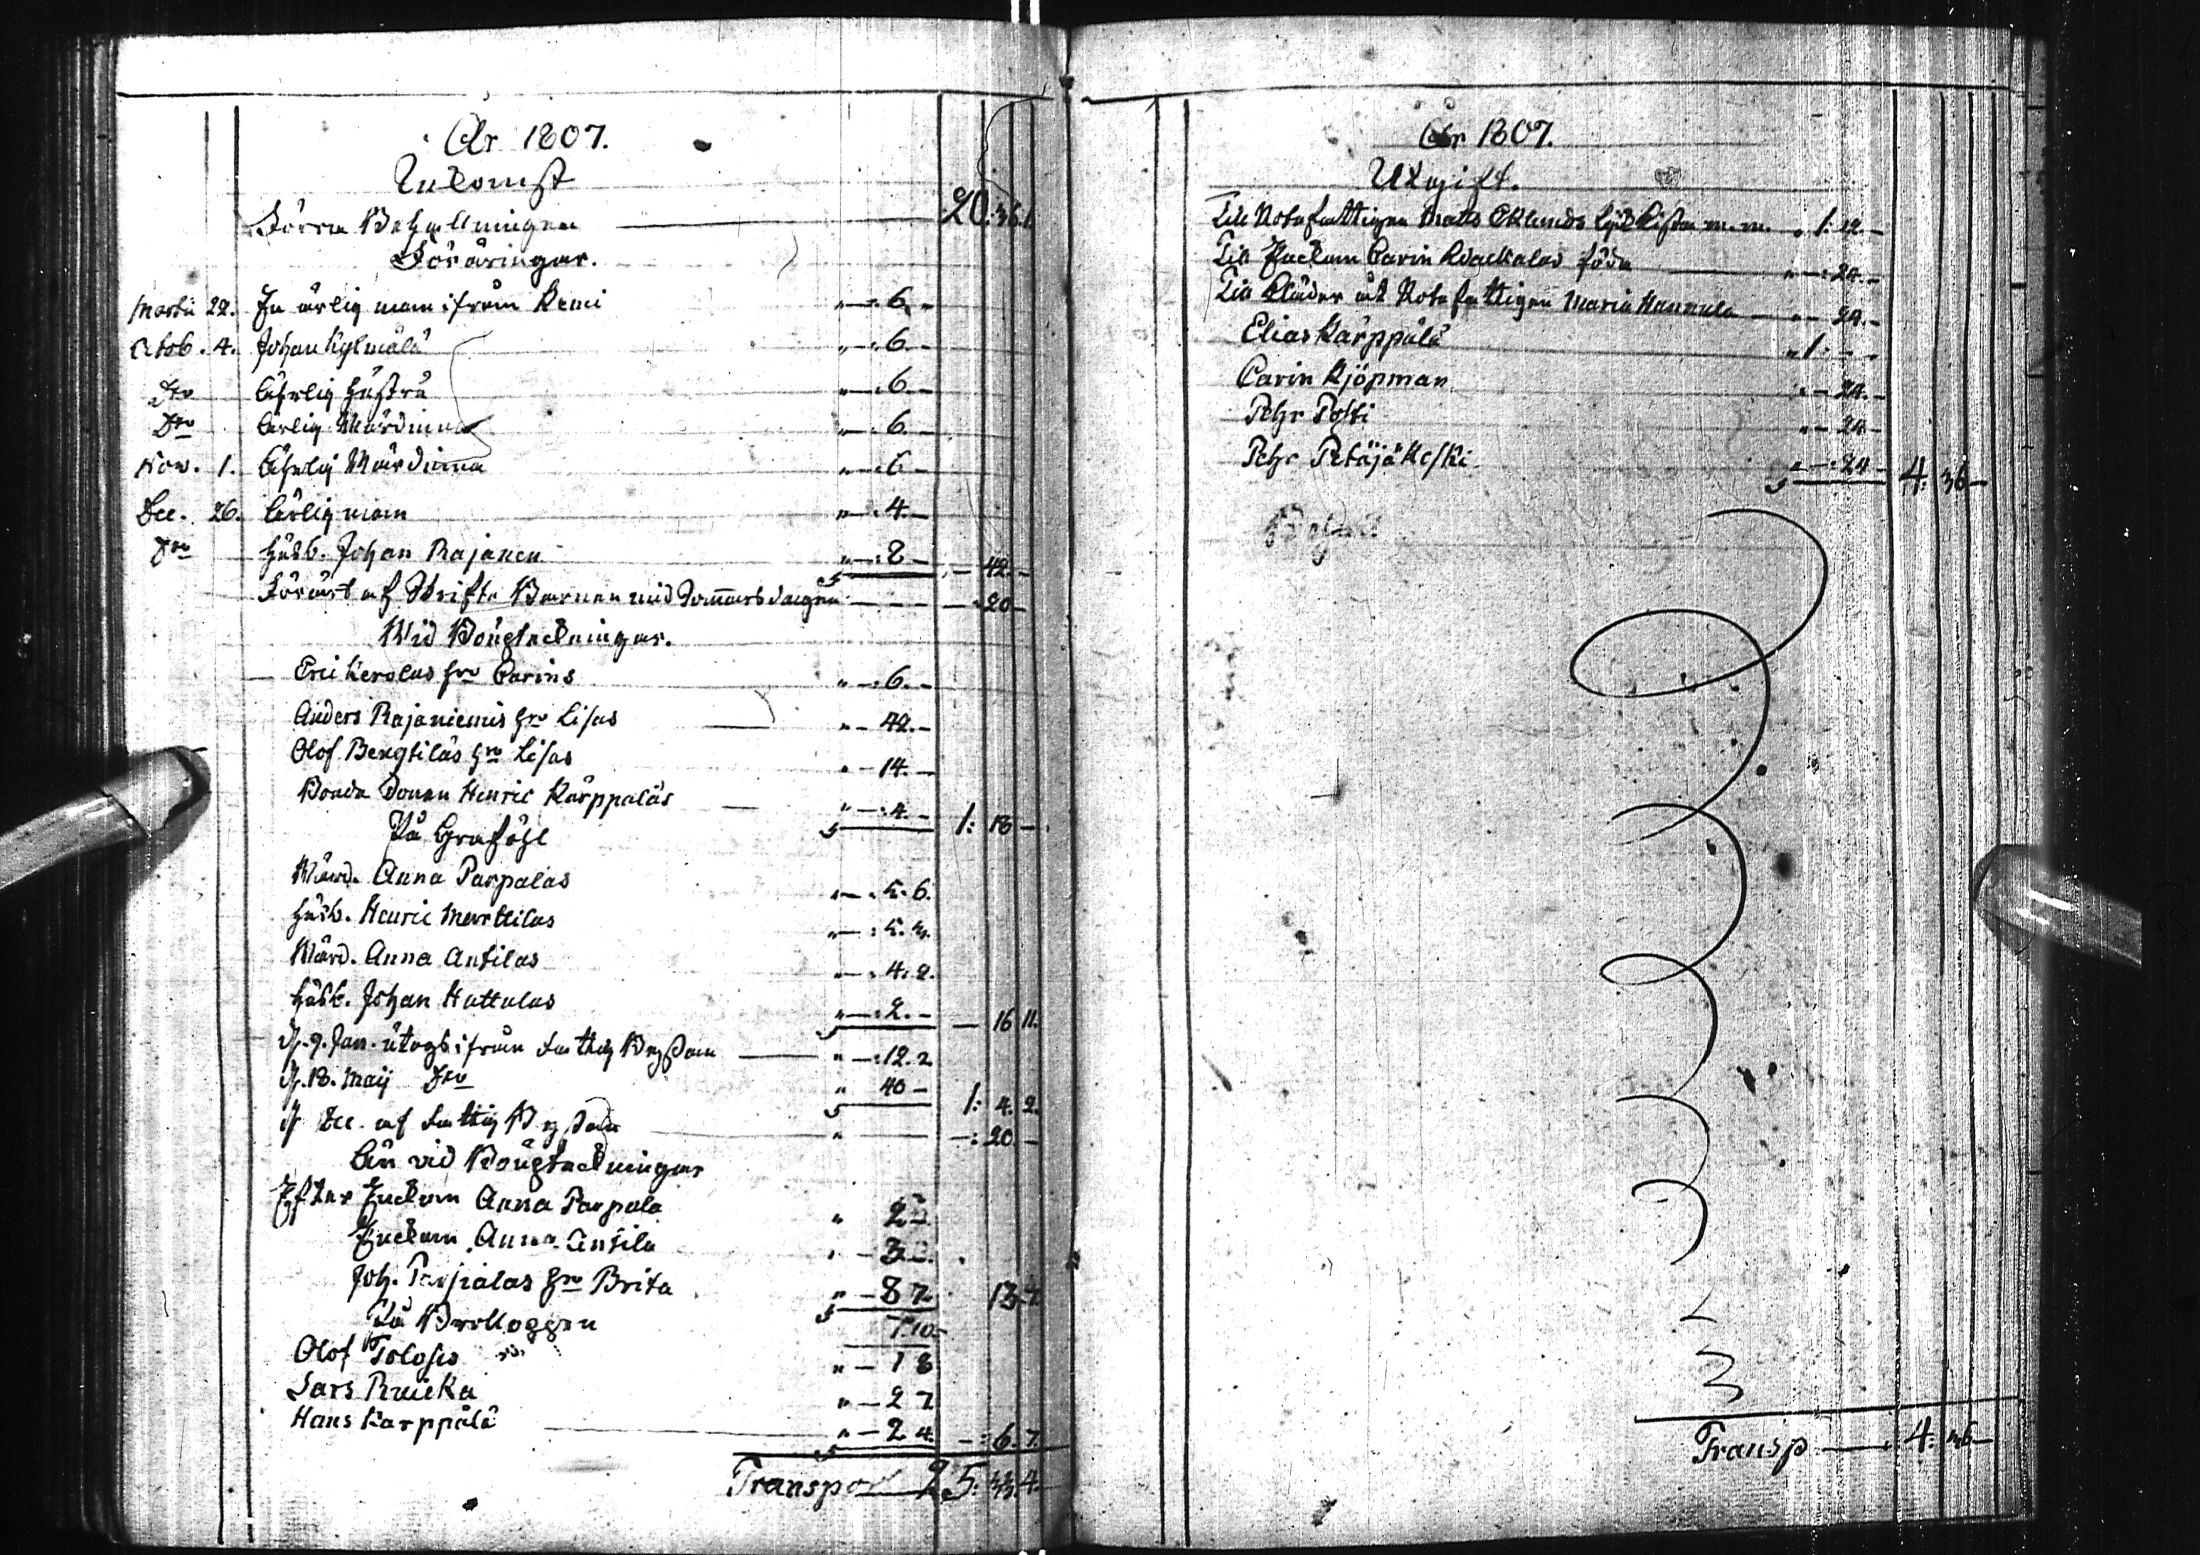 År 1807.
Inkomst
Förra Behållningen — 20:36.1.
Föräringar.
Martii 22. En ärlig man ifrån Kemi " —: 6. –
Octob. 4. Johan Kylmälä " —: 6. –
Dito Ährlig Hustru " —: 6 –
Dito Ärlig Wärdinna " —: 6. –
Nov. 1. Ährlig Wärdinna " —: 6 –
Dec. 26. Ärlig man " —: 4. –
Dito Husb. Johan Rajanen " —: 8 – — 42. –
Förärt af Skrifte Barnen mid Sommars dagen — — 20 –
Wid Bouptekningar.
Eric Kerolas hro Carins " —: 6. –
Anders Rajaniemis hro Lisas " — 42. –
Olof Bengtilas hro Lisas " — 14. –
Bonde Sonen Henric Kärppäläs " —: 4. – 1: 18 –
På Graföhl
Wärd. Anna Parpalas " —: 5. 6.
Husb. Henric Marttilas " —: 5. 3.
Wärd. Anna Antilas " —: 4. 2.
Husb. Johan Hattulas " —: 2. – — 16 11.
D. 9. Jan. utogs ifrån Fattig Byssan — " —: 12. 2
D. 18. Maij Dito " 40 – 1: 4. 2.
D Dec. af Fattig Byssan " —: 20 –
Än vid Bouptekningar
Efter Enckan Anna Parpala " 2
Enckan Anna Antila " – 3
Joh. Parpalas hro Brita " – 8 7. 13. 7
På Brölloppen 7. 10 –
Olof Tolosis " – 1 8
Lars Ruicka " – 2 7
Hans Karppälä " – 2 4. —: 6. 7.
Transport 25: 33. 4.
År 1807.
Utgift.
Till Rotefattigen Matts Eklunds lijk Kista m.m. " 1: 12. –
Till Enckan Carin Kvackalas föda " —: 24. –
Till Kläder åt Rotefattigen Maria Hannula " – 24. –
Elias Kärppälä " 1: – –
Carin Kjöpman " – 24. –
Pehr Posti " – 24 –
Pehr Petäjäkeski " —: 24 – 4: 36 –
Transp — 4: 36 –